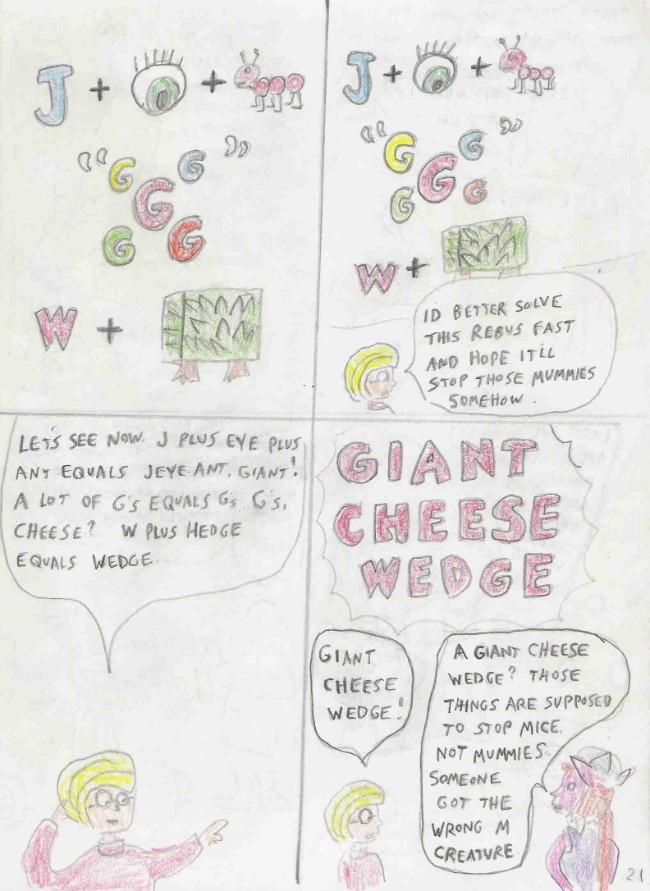 J + +
" G G G G G "
W +
J + +
" G G G G G "
W +
I'D BETTER SOLVE
THIS REBUS FAST
AND HOPE IT'LL
STOP THOSE MUMMIES
SOMEHOW.
LET'S SEE NOW. J PLUS EYE PLUS
ANT EQUALS JEYE-ANT, GIANT!
A LOT OF G'S EQUALS G'S. G'S,
CHEESE? W PLUS HEDGE
EQUALS WEDGE.
GIANT
CHEESE
WEDGE
GIANT
CHEESE
WEDGE!
A GIANT CHEESE
WEDGE? THOSE
THINGS ARE SUPPOSED
TO STOP MICE,
NOT MUMMIES.
SOMEONE
GOT THE
WRONG M
CREATURE
21